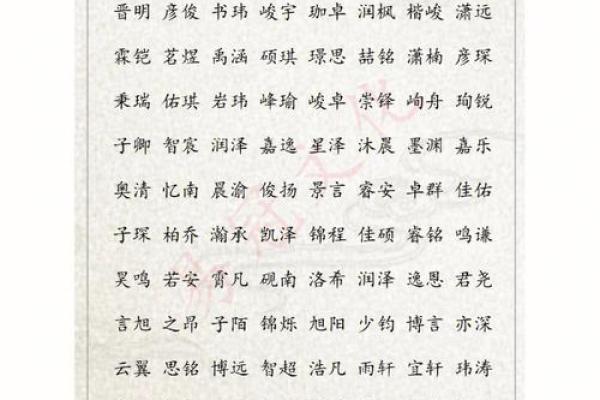 晋明 彦俊 书玮 峻宇 珈卓 润枫 楷峻 潇远
霖铠 茗煜 禹涵 硕琪 璟思 喆铭 潇楠 彦琛
秉瑞 佑琪 岩玮 峰瑜 峻卓 崇铎 峋舟 珣锐
子卿 智宸 润泽 嘉逸 星泽 沐晨 墨渊 嘉乐
奥清 忆南 晨渝 俊扬 景言 睿安 卓群 佳佑
子琛 柏乔 瀚承 凯泽 锦程 佳硕 睿铭 鸣谦
昊鸣 若安 霄凡 砚南 洛希 润泽 逸恩 君尧
言旭 之昂 子陌 锦烁 旭阳 少钧 博言 亦深
云翼 思铭 博远 智超 浩凡 雨轩 宜轩 玮涛